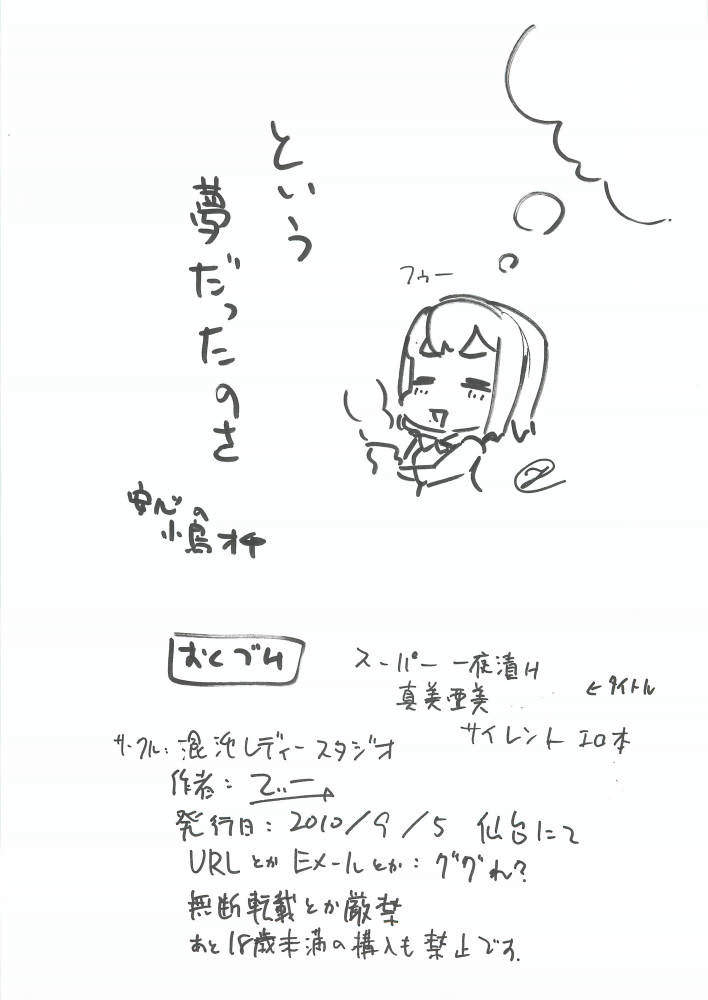 という
夢だったのさ
フゥー
安心の
小鳥オチ
おくづけ
スーパー一夜漬け
真美亜美
サイレントエロ本
←タイトル
サークル:混沌レディースタジオ
作者:てぃー
発行日:2010/9/5 仙台にて
URLとかEメールとか:ググれ?
無断転載とか厳禁
あと18歳未満の購入も禁止です.